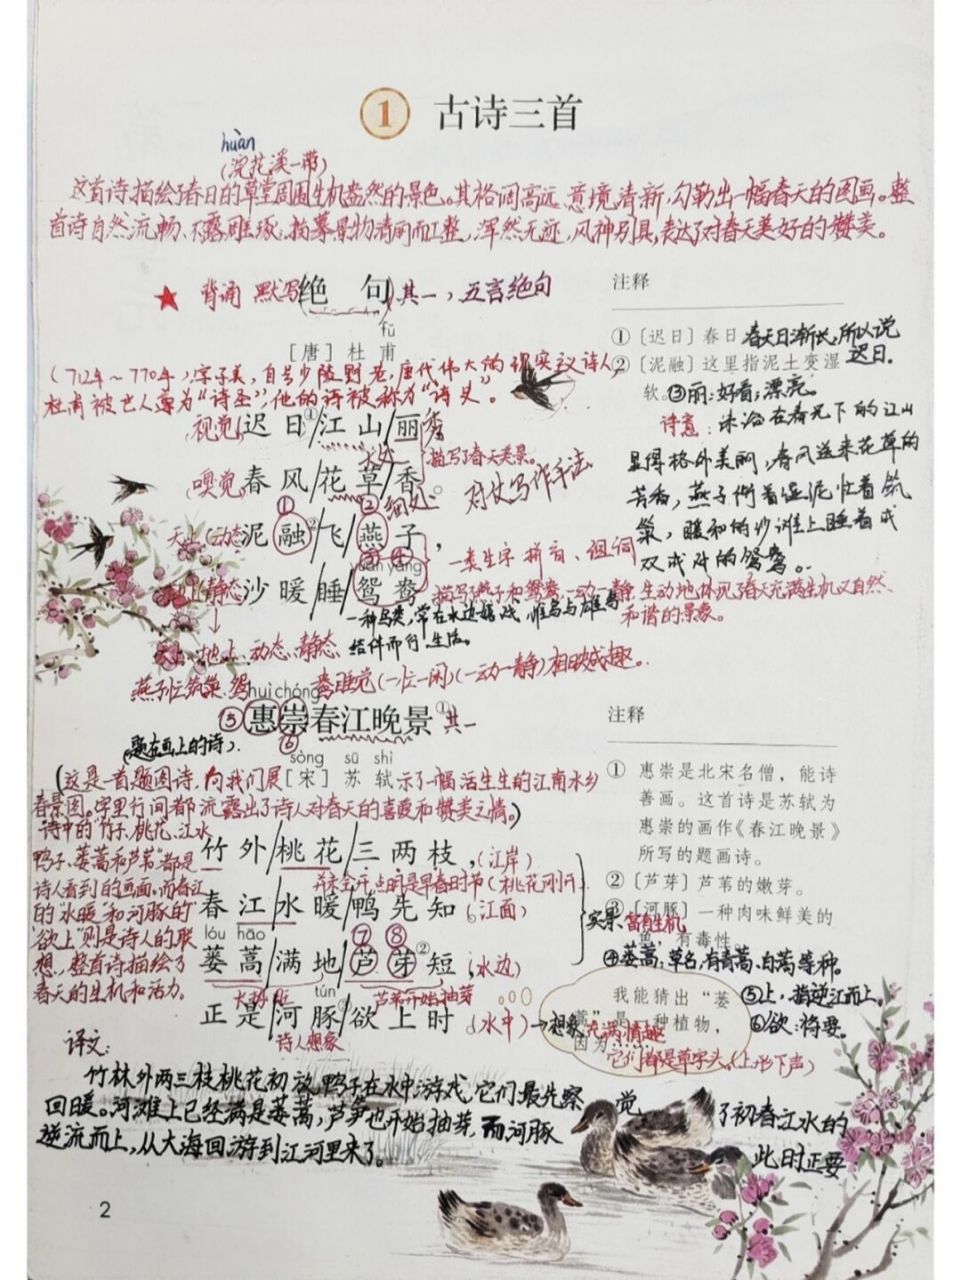 1 古诗三首
huàn
(浣花溪一带)
这首诗描绘了春日的草堂周围生机盎然的景色。其格调高远,意境清新,勾勒出一幅春天的图画。整
首诗自然流畅、不露雕琢,描摹景物清丽而工整,浑然无迹,风神别具,表达了对春天美好的赞美。
★ 背诵 默写 绝 句 其一,五言绝句
fǔ
[唐] 杜 甫
(712年~770年),字子美,自号少陵野老,唐代伟大的现实主义诗人
杜甫被世人尊为“诗圣”,他的诗被称为“诗史”。
视觉 迟 日①/江 山/丽 秀
描写了春天美景。
嗅觉 春 风/花 草/香。
对仗写作手法
① ② 细处
天上(动态) 泥 融②/飞/燕 子,
③ ④
一类生字 拼音、组词
yuān yāng
(静态) 沙 暖/睡/鸳 鸯
描写了燕子和鸳鸯,一动一静,生动地体现了春天充满生机又自然、
和谐的景象。
一种鸟类,常在水边嬉戏,雌鸟与雄鸟
结伴而行、生活。
天上、地上、动态、静态
燕子忙筑巢 鸳鸯睡觉(一忙一闲)(一动一静)相映成趣。
注释
① [迟日] 春日 春天日渐长,所以说
迟日.
② [泥融] 这里指泥土变湿
软。③丽:好看;漂亮。
诗意:沐浴在春光下的江山
显得格外美丽,春风送来花草的
芳香,燕子衔着湿泥忙着筑
巢,暖和的沙滩上睡着成
双成对的鸳鸯。
huì chóng
⑤ 惠 崇 春江晚景① 其一
⑥
(题在画上的诗)
sòng sū shì
[宋] 苏 轼
(这是一首题图诗,向我们展示了一幅活生生的江南水乡
春景图。字里行间都流露出了诗人对春天的喜爱和赞美之情。)
诗中的“竹子、桃花、江水、
鸭子、蒌蒿和芦芽”都是
诗人看到的画面。而春江
的“水暖”和河豚的
“欲上”则是诗人的联
想,整首诗描绘了
春天的生机和活力。
竹 外/桃 花/三 两 枝,(江岸)
并未全开,点明是早春时节(桃花刚开)
春 江/水 暖/鸭 先 知。(江面)
lóu hāo ⑦ ⑧
蒌 蒿/满 地/芦 芽②短,(水边)
tún 芦苇开始抽芽
正 是/河 豚③/欲 上 时 (水中)→想象 充满情趣
诗人想象
实景 富有生机
注释
① 惠崇是北宋名僧,能诗
善画。这首诗是苏轼为
惠崇的画作《春江晚景》
所写的题画诗。
② [芦芽] 芦苇的嫩芽。
③ [河豚] 一种肉味鲜美的
鱼,有毒性。
④蒌蒿,草名,有青蒿、白蒿等种。
⑤上,指逆江而上。
⑥欲:将要。
我能猜出“蒌
蒿”是一种植物,
因为……
它们都是草字头。(上形下声)
译文:
竹林外两三枝桃花初放,鸭子在水中游戏,它们最先察觉了初春江水的
回暖。河滩上已经满是蒌蒿,芦笋也开始抽芽,而河豚此时正要
逆流而上,从大海回游到江河里来了。
2